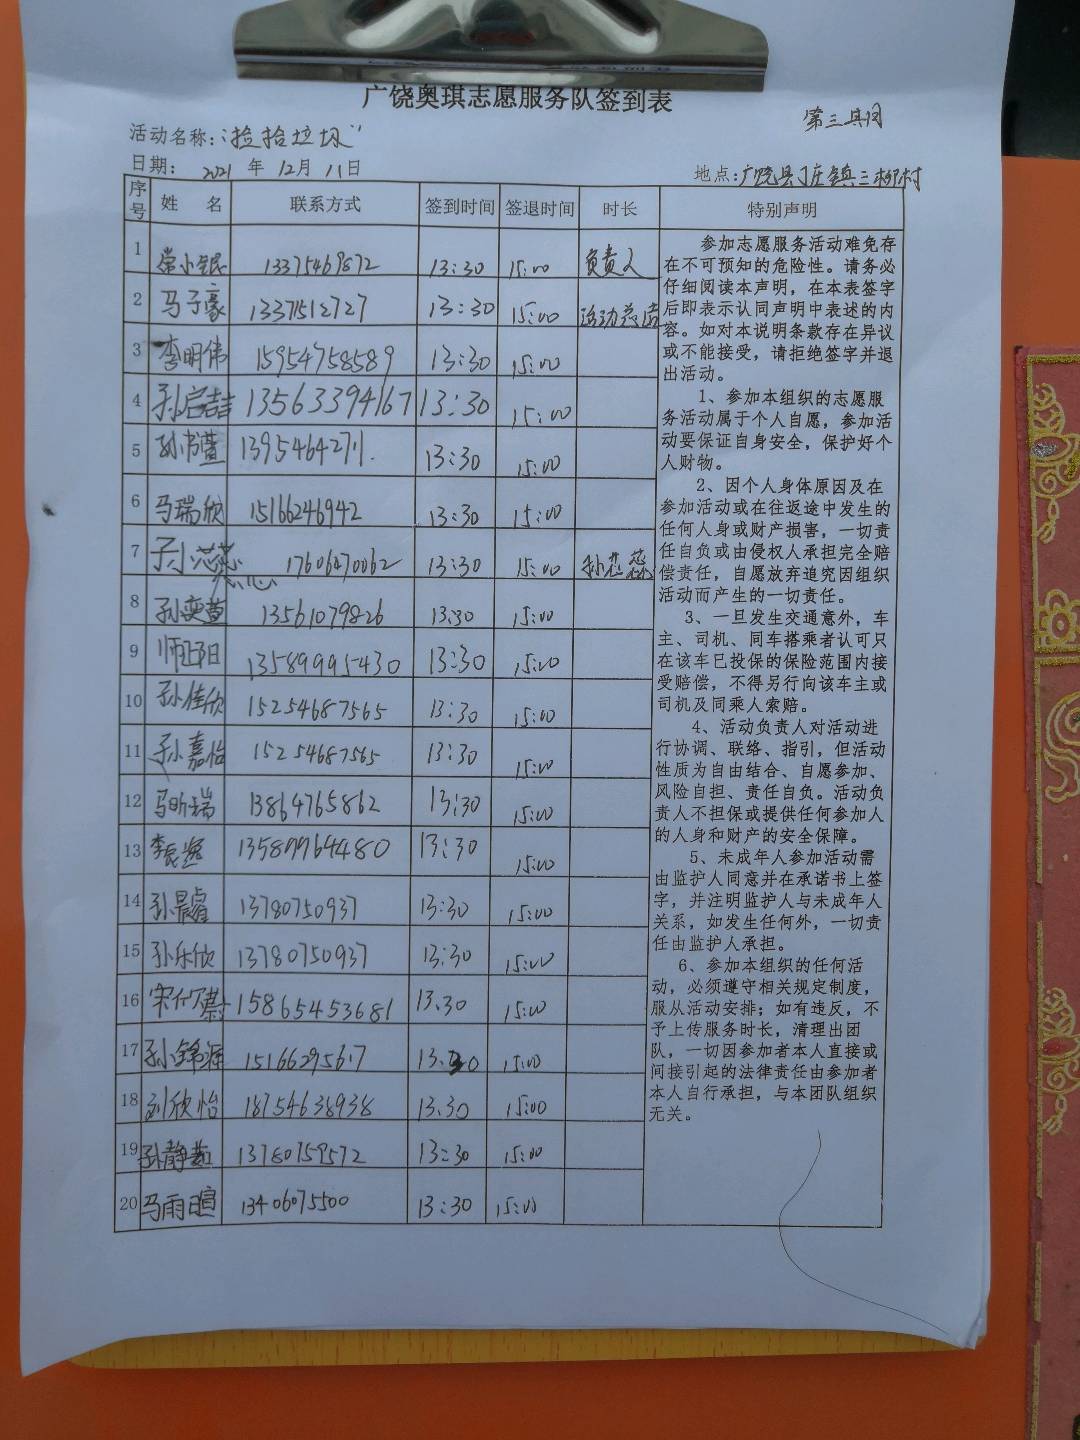 广饶奥琪志愿服务队签到表
第三类团
活动名称:"捡拾垃圾"
日期: 2021 年 12月 11日 地点:广饶县丁庄镇三柳村
序号 姓 名 联系方式 签到时间 签退时间 时长 特别声明
1 常小银 13375469872 13:30 15:00 负责人
2 马子豪 13371512727 13:30 15:00 活动
3 李明伟 15954758589 13:30 15:00
4 孙启喆 13563394167 13:30 15:00
5 孙书萱 13954642711. 13:30 15:00
6 马瑞欣 15166246942 13:30 15:00
7 孙芯蕊 17606470062 13:30 15:00 孙芯蕊
8 孙奕萱 13561079826 13:30 15:00
9 师 阳 13589995430 13:30 15:00
10 孙佳欣 15254687565 13:30 15:00
11 孙嘉怡 15254687565 13:30 15:00
12 马昕瑞 13864765862 13:30 15:00
13 李 13589964480 13:30 15:00
14 孙晨睿 13780750937 13:30 15:00
15 孙乐欣 13780750937 13:30 15:00
16 宋 蔚 15865453681 13.30 15:00
17 孙锦源 15166295617 13.30 15:00
18 刘欣怡 18754638938 13.30 15:00
19 孙静茹 13780759572 13:30 15:00
20 马雨暄 13406075500 13:30 15:00
参加志愿服务活动难免存
在不可预知的危险性。请务必
仔细阅读本声明,在本表签字
后即表示认同声明中表述的内
容。如对本说明条款存在异议
或不能接受,请拒绝签字并退
出活动。
1、参加本组织的志愿服
务活动属于个人自愿,参加活
动要保证自身安全,保护好个
人财物。
2、因个人身体原因及在
参加活动或在往返途中发生的
任何人身或财产损害,一切责
任自负或由侵权人承担完全赔
偿责任,自愿放弃追究因组织
活动而产生的一切责任。
3、一旦发生交通意外,车
主、司机、同车搭乘者认可只
在该车已投保的保险范围内接
受赔偿,不得另行向该车主或
司机及同乘人索赔。
4、活动负责人对活动进
行协调、联络、指引,但活动
性质为自由结合、自愿参加、
风险自担、责任自负。活动负
责人不担保或提供任何参加人
的人身和财产的安全保障。
5、未成年人参加活动需
由监护人同意并在承诺书上签
字,并注明监护人与未成年人
关系,如发生任何外,一切责
任由监护人承担。
6、参加本组织的任何活
动,必须遵守相关规定制度,
服从活动安排;如有违反,不
予上传服务时长,清理出团
队,一切因参加者本人直接或
间接引起的法律责任由参加者
本人自行承担,与本团队组织
无关。